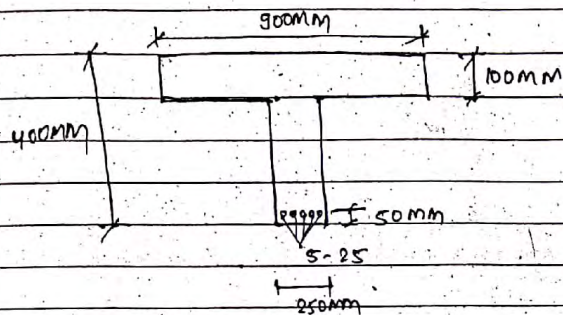 900MM
100MM
400MM
50MM
5-25
250MM